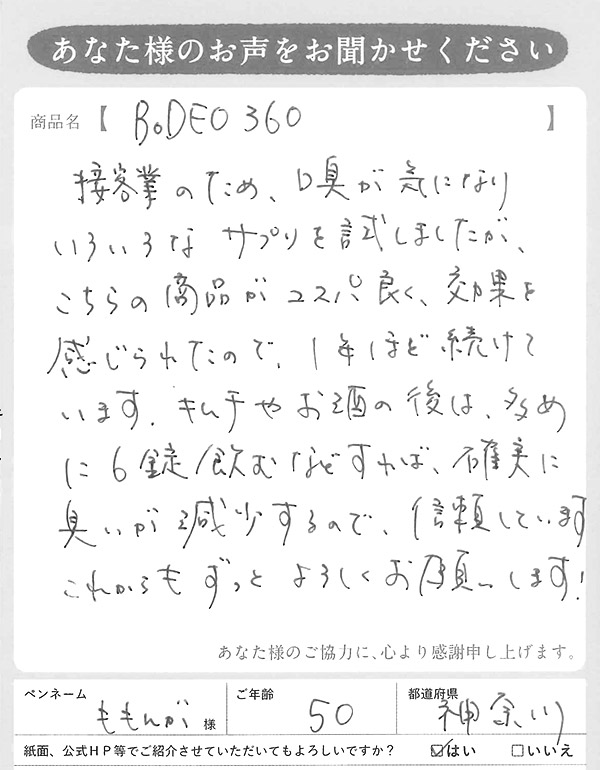 あなた様のお声をお聞かせください
商品名【 BoDEO 360 】
接客業のため、口臭が気になり
いろいろなサプリを試しましたが、
こちらの商品がコスパ良く、効果を
感じられたので、1年ほど続けて
います。キムチやお酒の後は、多め
に6錠飲むなどすれば、確実に
臭いが減少するので、信頼しています
これからもずっとよろしくお願いします!
あなた様のご協力に、心より感謝申し上げます。
ペンネーム ももんが 様 ご年齢 50 都道府県 神奈川
紙面、公式HP等でご紹介させていただいてもよろしいですか? ☑はい □いいえ